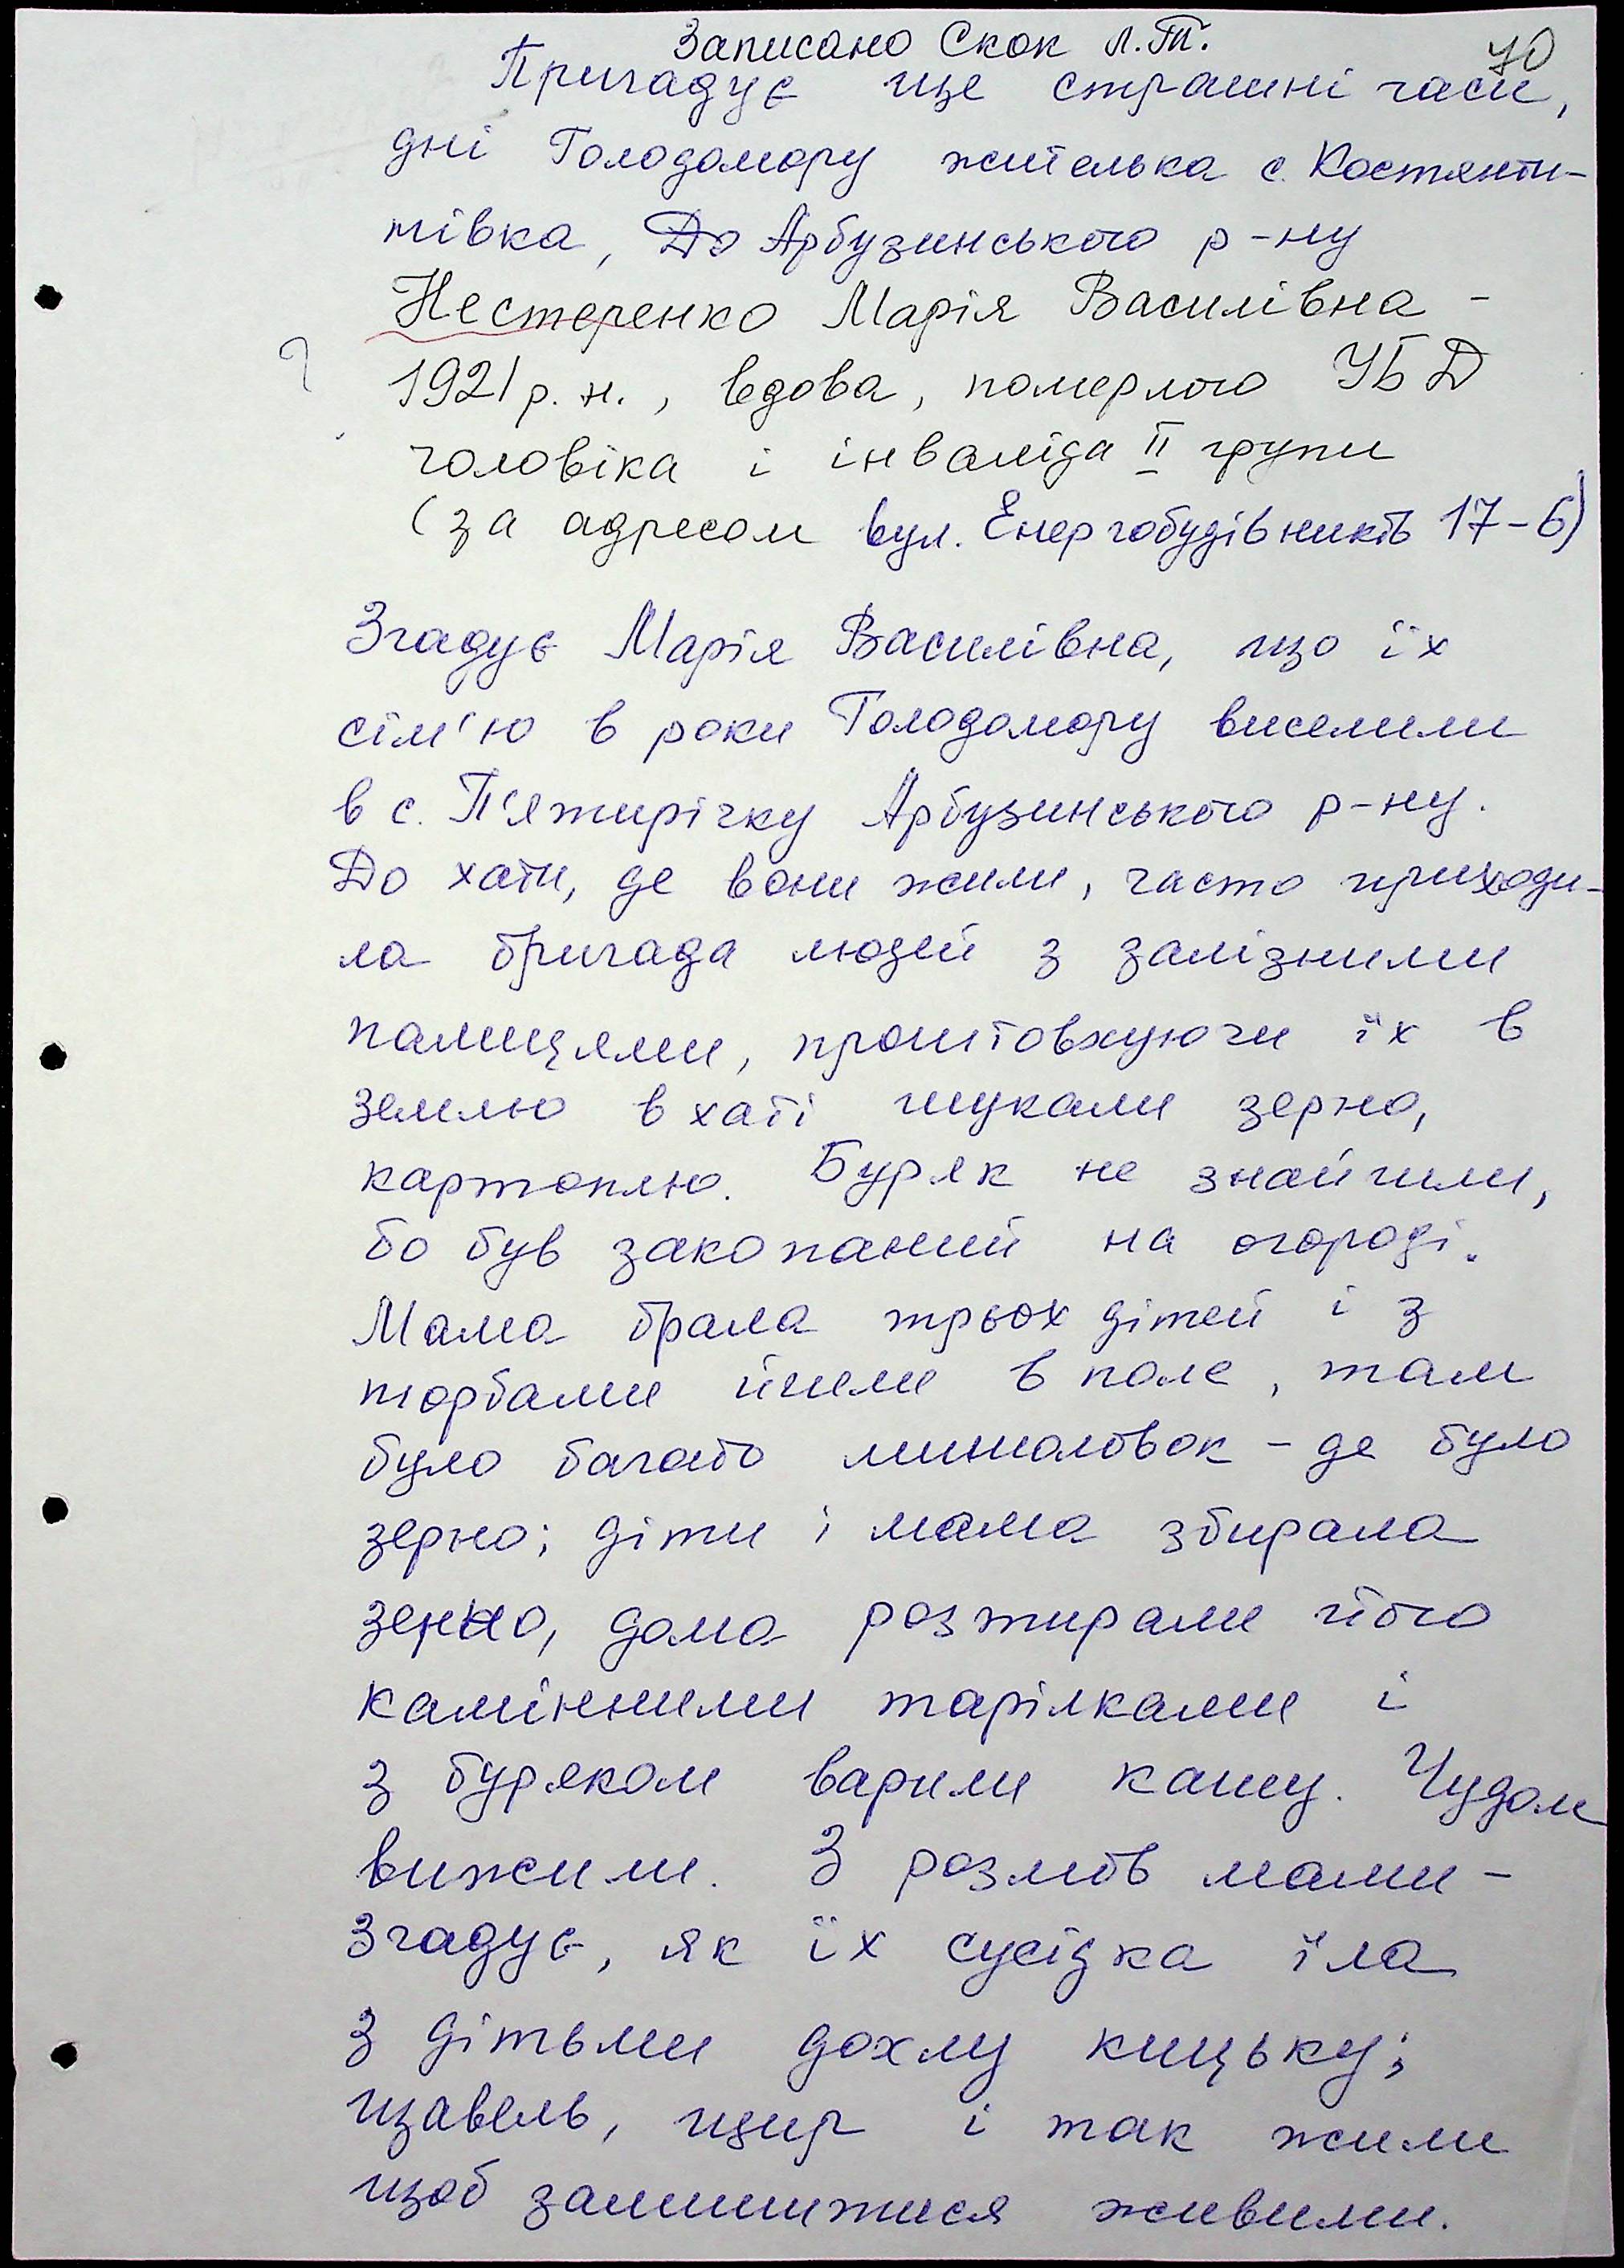 Записано Скок Л.Т.
70
Пригадує ще страшні часи,
дні Голодомору жителька с. Костянти-
нівка, До Арбузинського р-ну
Нестеренко Марія Василівна -
1921 р. н., вдова, померлого УБД
чоловіка і інваліда II групи
(за адресом вул. Енергобудівників 17-6)
Згадує Марія Василівна, що їх
сім'ю в роки Голодомору виселили
в с. П'ятирічку Арбузинського р-ну.
До хати, де вони жили, часто приходи-
ла бригада людей з залізними
палицями, проштовхуючи їх в
землю в хаті шукали зерно,
картоплю. Буряк не знайшли,
бо був закопаний на огороді.
Мама брала трьох дітей і з
торбами йшли в поле, там
було багато мишоловок - де було
зерно; діти і мама збирала
зерно, дома розтирали його
камінними тарілками і
з буряком варили кашу. Чудом
вижили. З розмов мами -
згадує, як їх сусідка їла
з дітьми дохлу кицьку;
щавель, щир і так жили
щоб залишитися живими.